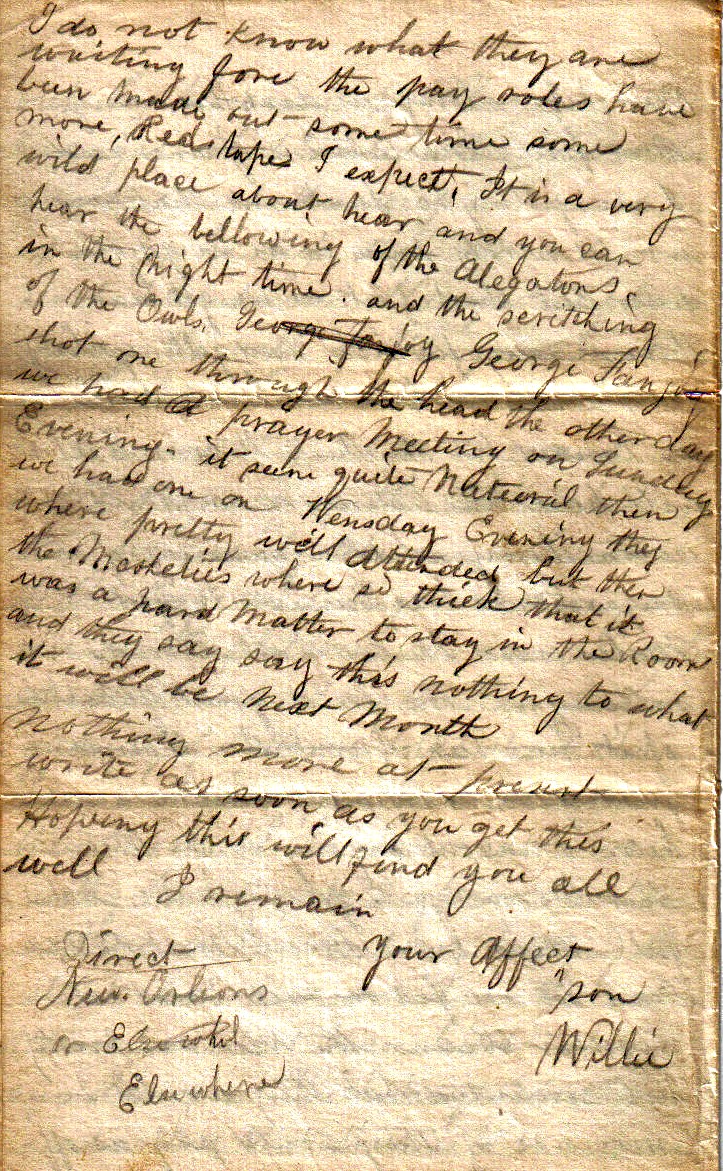 I do not know what they are
waiting fore the pay roles have
been made out some time some
more, Read tape I expect, It is a very
wild place about hear and you can
hear the bellowing of the Alegators,
in the Night time. and the scritching
of the Owls. George Fanjoy George Fanjoy
shot one through the head the other day
we had a prayer Meeting on Sunday
Evening. it seme quite Nateural then
we had one on Wensday Evening they
where pretty well attended but then
the Mosketies where so thick that it
was a hard Matter to stay in the Room
and they say say this nothing to what
it will be next Month
Nothing more at present
write as soon as you get this
Hopeing this will find you all
well I remain
your Affect
son
Willie
Direct
New. Orleons
or
Elsewhere